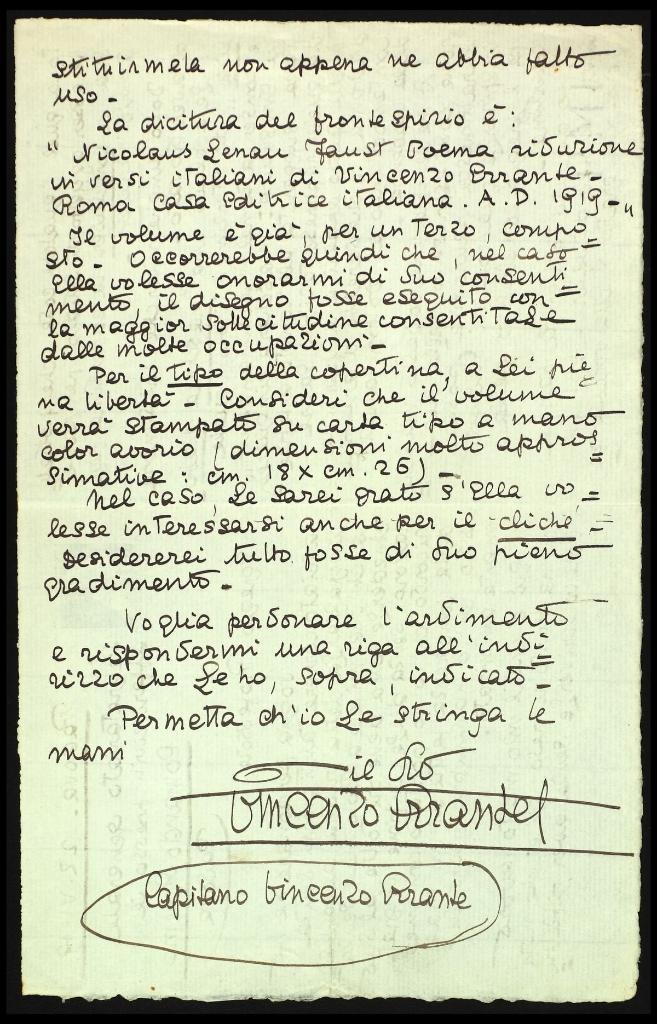 stituirmela non appena ne abbia fatto
uso -
La dicitura del frontespizio è:
" Nicolaus Lenau Faust Poema riduzione
in versi italiani di Vincenzo Errante -
Roma Casa Editrice italiana. A. D. 1919 - "
Il volume è già, per un terzo, compo=
sto - Occorrerebbe quindi che, nel caso
Ella volesse onorarmi di Suo consenti=
mento, il disegno fosse eseguito con
la maggior sollecitudine consentitale
dalle molte occupazioni -
Per il tipo della copertina, a Lei pie=
na libertà - Consideri che il volume
verrà stampato su carta tipo a mano
color avorio (dimensioni molto appros=
simative: cm. 18 x cm. 26) -
Nel caso, Le sarei grato s'Ella vo=
lesse interessarsi anche per il cliché -
Desidererei tutto fosse di Suo pieno
gradimento -
Voglia perdonare l'ardimento
e rispondermi una riga all'indi=
rizzo che Le ho, sopra, indicato -
Permetta ch'io Le stringa le
mani
il Suo
Vincenzo Errante
Capitano Vincenzo Errante